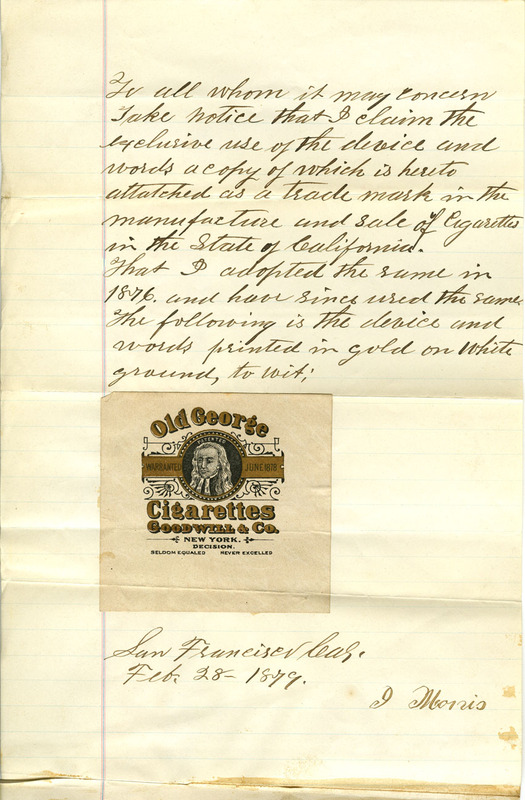 To all whom it may concern
Take notice that I claim the
exclusive use of the device and
words a copy of which is hereto
attatched as a trade mark in the
manufacture and sale of Cigarettes
in the State of California.
That I adopted the same in
1876. and have since used the same.
The following is the device and
words printed in gold on White
ground, to wit;
Old George
PATENTED
WARRANTED JUNE 1878
Cigarettes
GOODWILL & Co.
NEW YORK.
DECISION.
SELDOM EQUALED NEVER EXCELLED
San Francisco Cal.
Feb. 28 - 1879.
I Morris